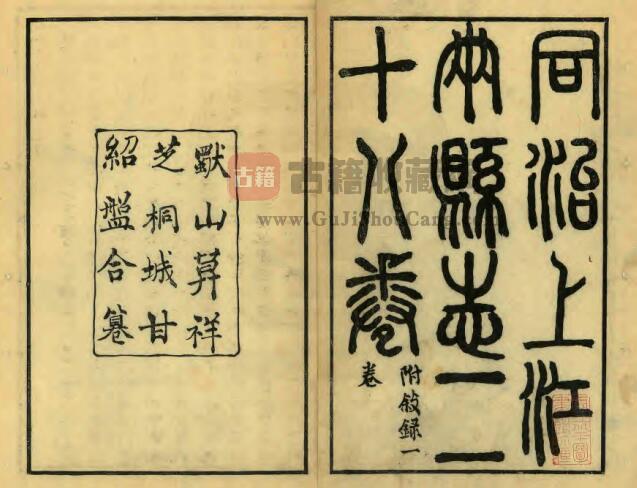 同治上江
兩縣志二
十八卷
附敘録一
卷
獨山莫祥
芝桐城甘
紹盤合纂
古籍
古籍收藏
www.GuJiShouCang.com